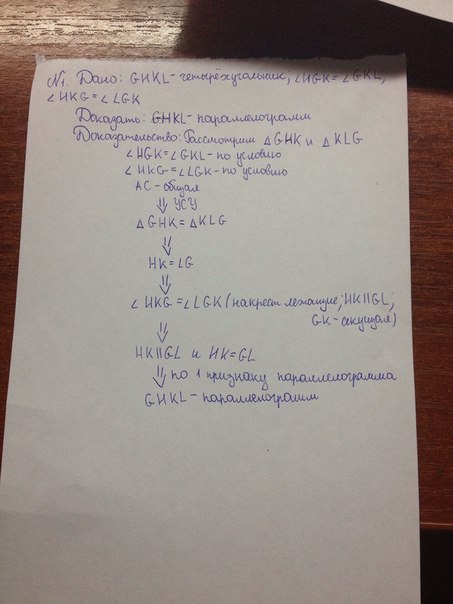 №1. Дано: GHKL-четырёхугольник, ∠HGK=∠GKL,
∠HKG=∠LGK
Доказать: GHKL-параллелограмм
Доказательство: Рассмотрим △GHK и △KLG
∠HGK=∠GKL-по условию
∠HKG=∠LGK-по условию
AC-общая
⇓ УСУ
△GHK=△KLG
⇓
HK=LG
⇓
∠HKG=∠LGK (накрест лежащие; HK||GL;
GK-секущая)
⇓
HK||GL и HK=GL
⇓ по 1 признаку параллелограмма
GHKL-параллелограмм